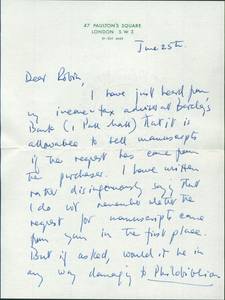 47 PAULTON'S SQUARE
LONDON S.W 3
June 25th.
Dear Robin,
I have just heard from
my income tax adviser at Barclay's
Bank (1 Pall Mall) that it is
allowable to sell manuscripts
if the request has come from
the purchaser. I have written
rather disingenuously say that
I do not remember whether the
request for manuscripts came
from you in the first place.
But if asked, would it be in
any way damaging to Philobiblion